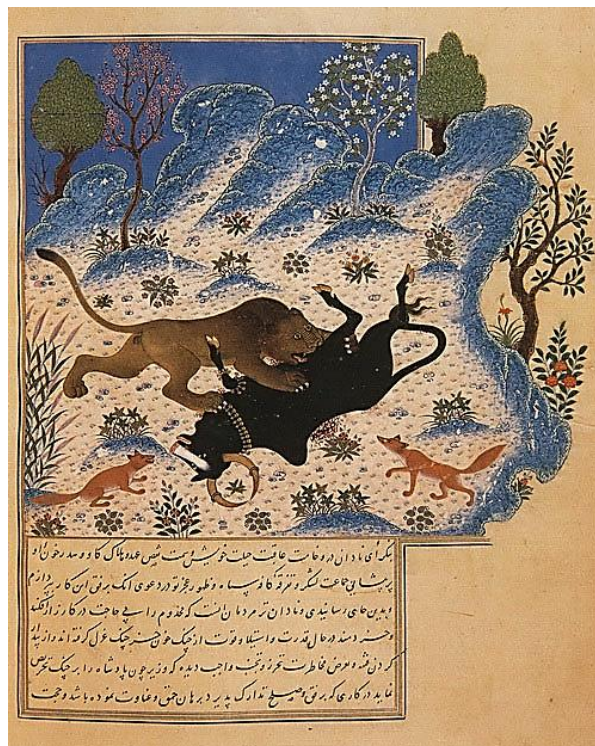 بنگر ای نادان در وخامت عاقبت حیلت خویش و سمت نقض عهد و هلاک گاو و هدر خون او
پریشانی جماعت لشکر و تفرقه کلمه سپاه و ظهور عجز تو در دعوی انک برفق این کار بپردازم
و بدین جای رسانیدی و نادان تر مردمان انست که مخدوم را بی حاجت در کارزار افکند
و خردمند در حال قدرت و استیلا و قوت از جنک چون خرچنک عزل گرفته اند و از بیدار
کردن فتنه و تعرض مخاطرت تحرز و تجنب واجب دیده که وزیر چون پادشاه را بر جنک تحریص
نماید در کاری که برفق و صلح تدارک پذیرد برهان حمق و غباوت نموده باشد و حجت